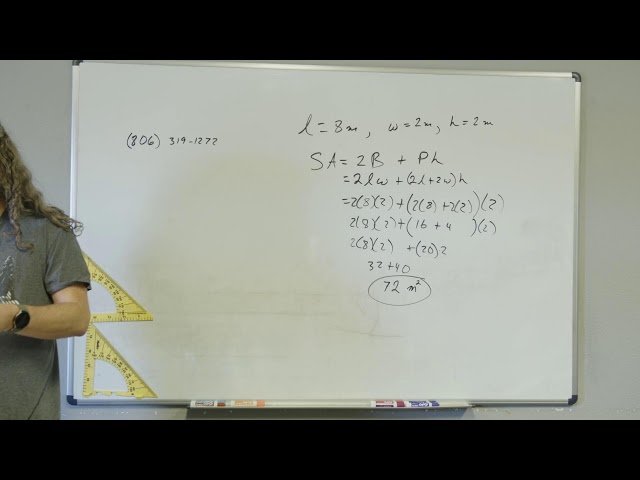 (806) 319-1272
l = 8m, w = 2m, h = 2m
SA = 2B + Ph
= 2lw + (2l+2w)h
= 2(8)(2) + (2(8) + 2(2))(2)
2(8)(2) + (16 + 4 )(2)
2(8)(2) + (20)2
32 + 40
72 m²